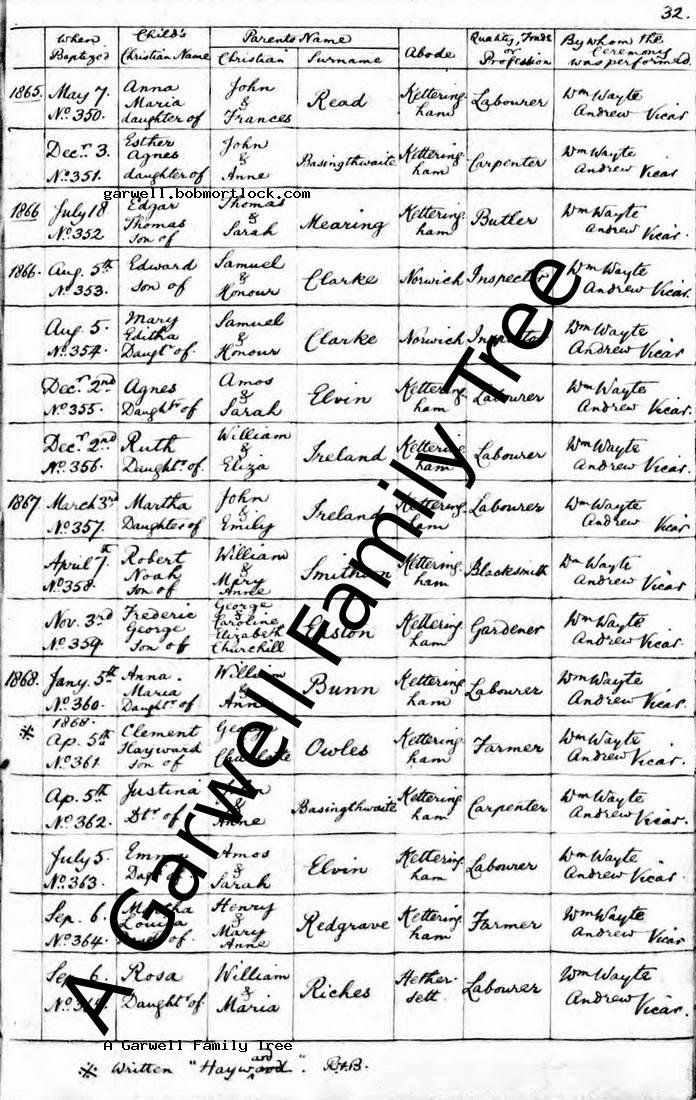 32.
When Baptized Child's Christian Name Parents Name Christian Surname Abode Quality, Trade or Profession By whom the Ceremony was performed.
1865. May 7. No. 350. Anna Maria daughter of John & Frances Read Ketteringham Labourer Wm Wayte Andrew Vicar
Decr. 3. No. 351. Esther Agnes daughter of John & Anne Basingthwaite Ketteringham Carpenter Wm Wayte Andrew Vicar
garwell.bobmortlock.com
1866 July 18 No. 352 Edgar Thomas son of Thomas & Sarah Mearing Ketteringham Butler Wm Wayte Andrew Vicar.
1866. Aug. 5th No. 353. Edward son of Samuel & Honour Clarke Norwich Inspector Wm Wayte Andrew Vicar.
Aug. 5. No. 354. Mary Editha Daughtr of. Samuel & Honour Clarke Norwich Inspector Wm Wayte Andrew Vicar.
Decr. 2nd No. 355. Agnes Daughtr of Amos & Sarah Elvin Ketteringham Labourer Wm Wayte Andrew Vicar.
Decr. 2nd No. 356. Ruth Daughtr of. William & Eliza Ireland Ketteringham Labourer Wm Wayte Andrew Vicar.
1867. March 3rd No. 357. Martha Daughter of John & Emily Ireland Ketteringham Labourer Wm Wayte Andrew Vicar
April 7th No. 358. Robert Noah son of William & Mary Anne Ketteringham Blacksmith Wm Wayte Andrew Vicar
Nov. 3rd No. 359. Frederic George son of George & Caroline Elizabeth Churchill Ketteringham Gardener Wm Wayte Andrew Vicar.
1868. Jany. 5th No. 360. Anna Maria Daughtr of William & Ann Bunn Ketteringham Labourer Wm Wayte Andrew Vicar.
※ 1868. Ap. 5th No. 361. Clement Hayward son of George Owles Ketteringham Farmer Wm Wayte Andrew Vicar.
Ap. 5th No. 362. Justina Dtr of & Anne Basingthwaite Ketteringham Carpenter Wm Wayte Andrew Vicar.
July 5. No. 363. Emma Daghtr of. Amos & Sarah Elvin Ketteringham Labourer Wm Wayte Andrew Vicar.
Sep. 6. No. 364. Martha Louisa of. Henry & Mary Anne Redgrave Ketteringham Farmer Wm Wayte Andrew Vicar
Sep. 6. Rosa Daughtr of. William & Maria Riches Hethersett. Labourer Wm Wayte Andrew Vicar.
A Garwell Family Tree
A Garwell Family Tree
※ Written "Hayward".